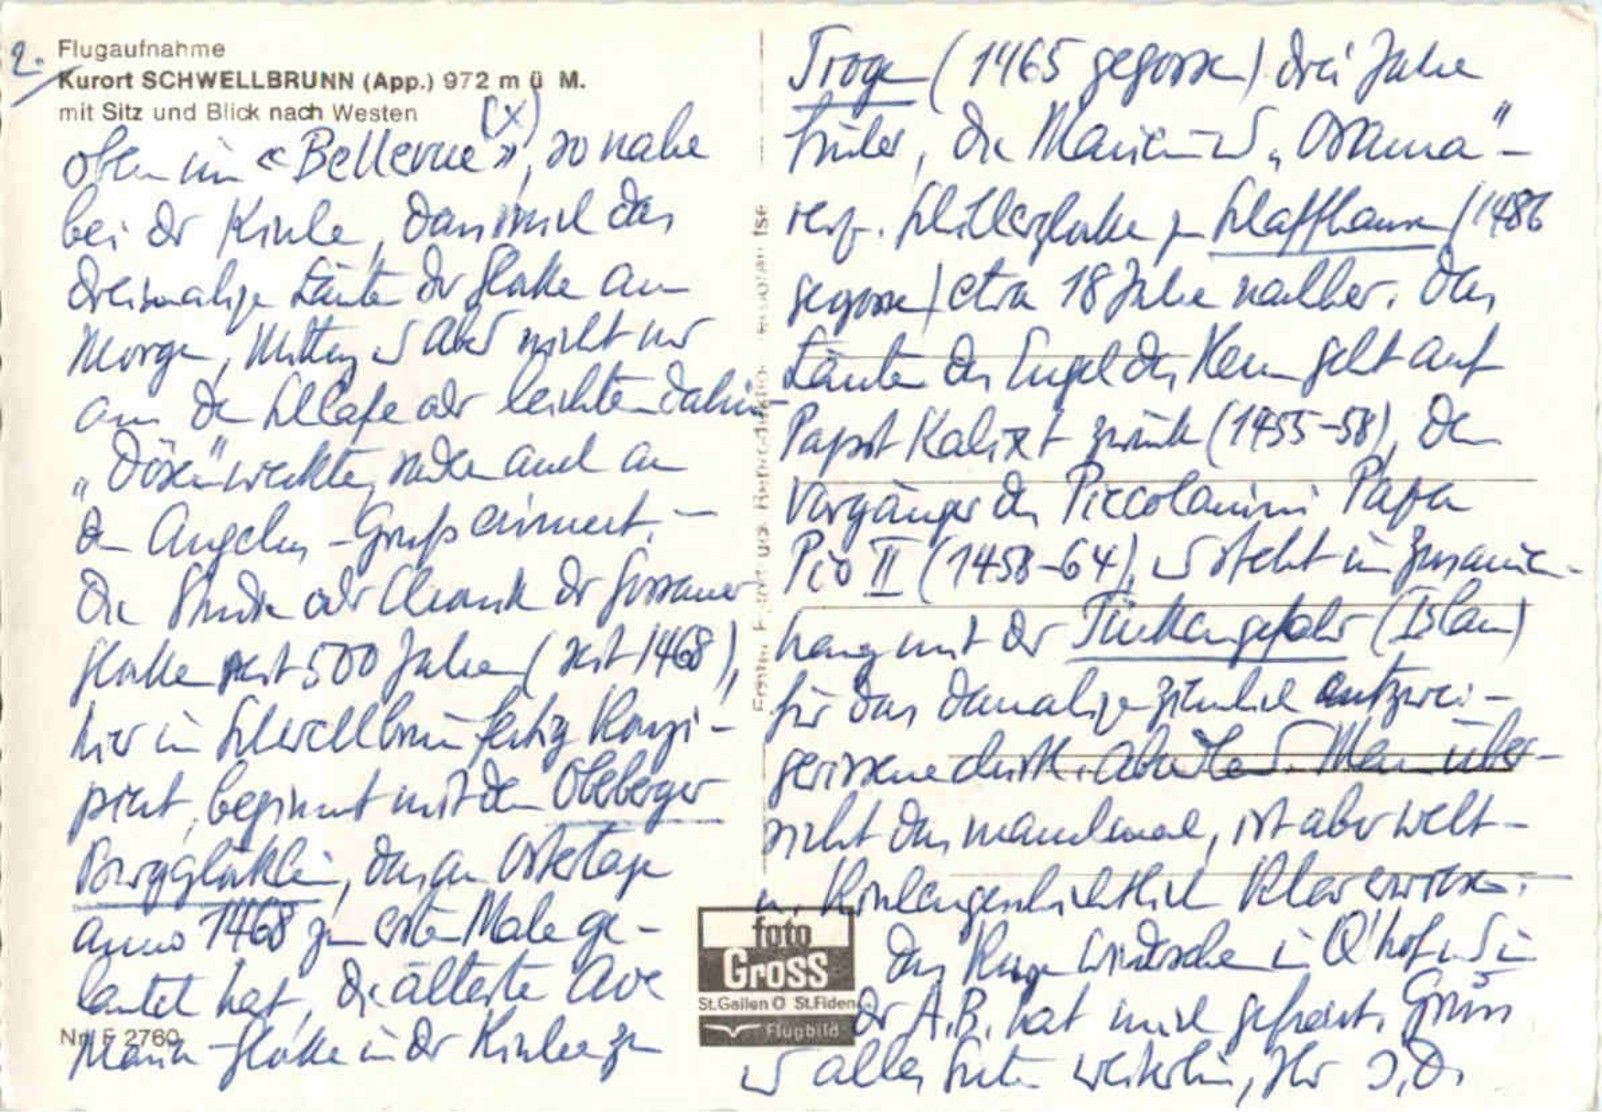 2.
Flugaufnahme
Kurort SCHWELLBRUNN (App.) 972 m ü M.
mit Sitz und Blick nach Westen
(x)
oben im «Bellevue», so nahe
bei der Kirche, dass mich das
dreimalige Läuten der Glocke am
Morgen, Mittag u Abend nicht nur
aus dem Schlafe oder leichten Dahin-
„Dösen" weckte, sondern auch an
den Angelus-Gruss erinnert. –
Die Studie oder Chronik der Gossauer
Glocken seit 500 Jahren (seit 1468),
hier in Schwellbrunn fertig konzi-
piert, beginnt mit dem Oberberger
Burgglöcklein, das an Ostertage
anno 1468 zum ersten Male ge-
läutet hat, die älteste Ave
Maria-Glocke in der Kirche zu
Nr. F 2760
Trogen (1465 gegossen) drei Jahre
früher, die Marien- u „Osanna"-
resp. Schillerglocke zu Schaffhausen (1486
gegossen) etwa 18 Jahre nachher. Das
Läuten des Engel des Herrn geht auf
Papst Kalixt zurück (1455-58), dem
Vorgänger des Piccolomini Papa
Pio II (1458-64), u steht im Zusammen-
hang mit der Türkengefahr (Islam)
für das damalige ziemlich entzwei-
gerissene christl. Abendland. Man über-
sieht das manchmal, ist aber welt-
u. kirchengeschichtlich klar erwiesen.
Das in O'hof u S in
der A.B. hat mich gefreut. Grüss
u alles Gute weiterhin, Ihr
foto
Gross
St.Gallen O St.Fiden
Flugbild